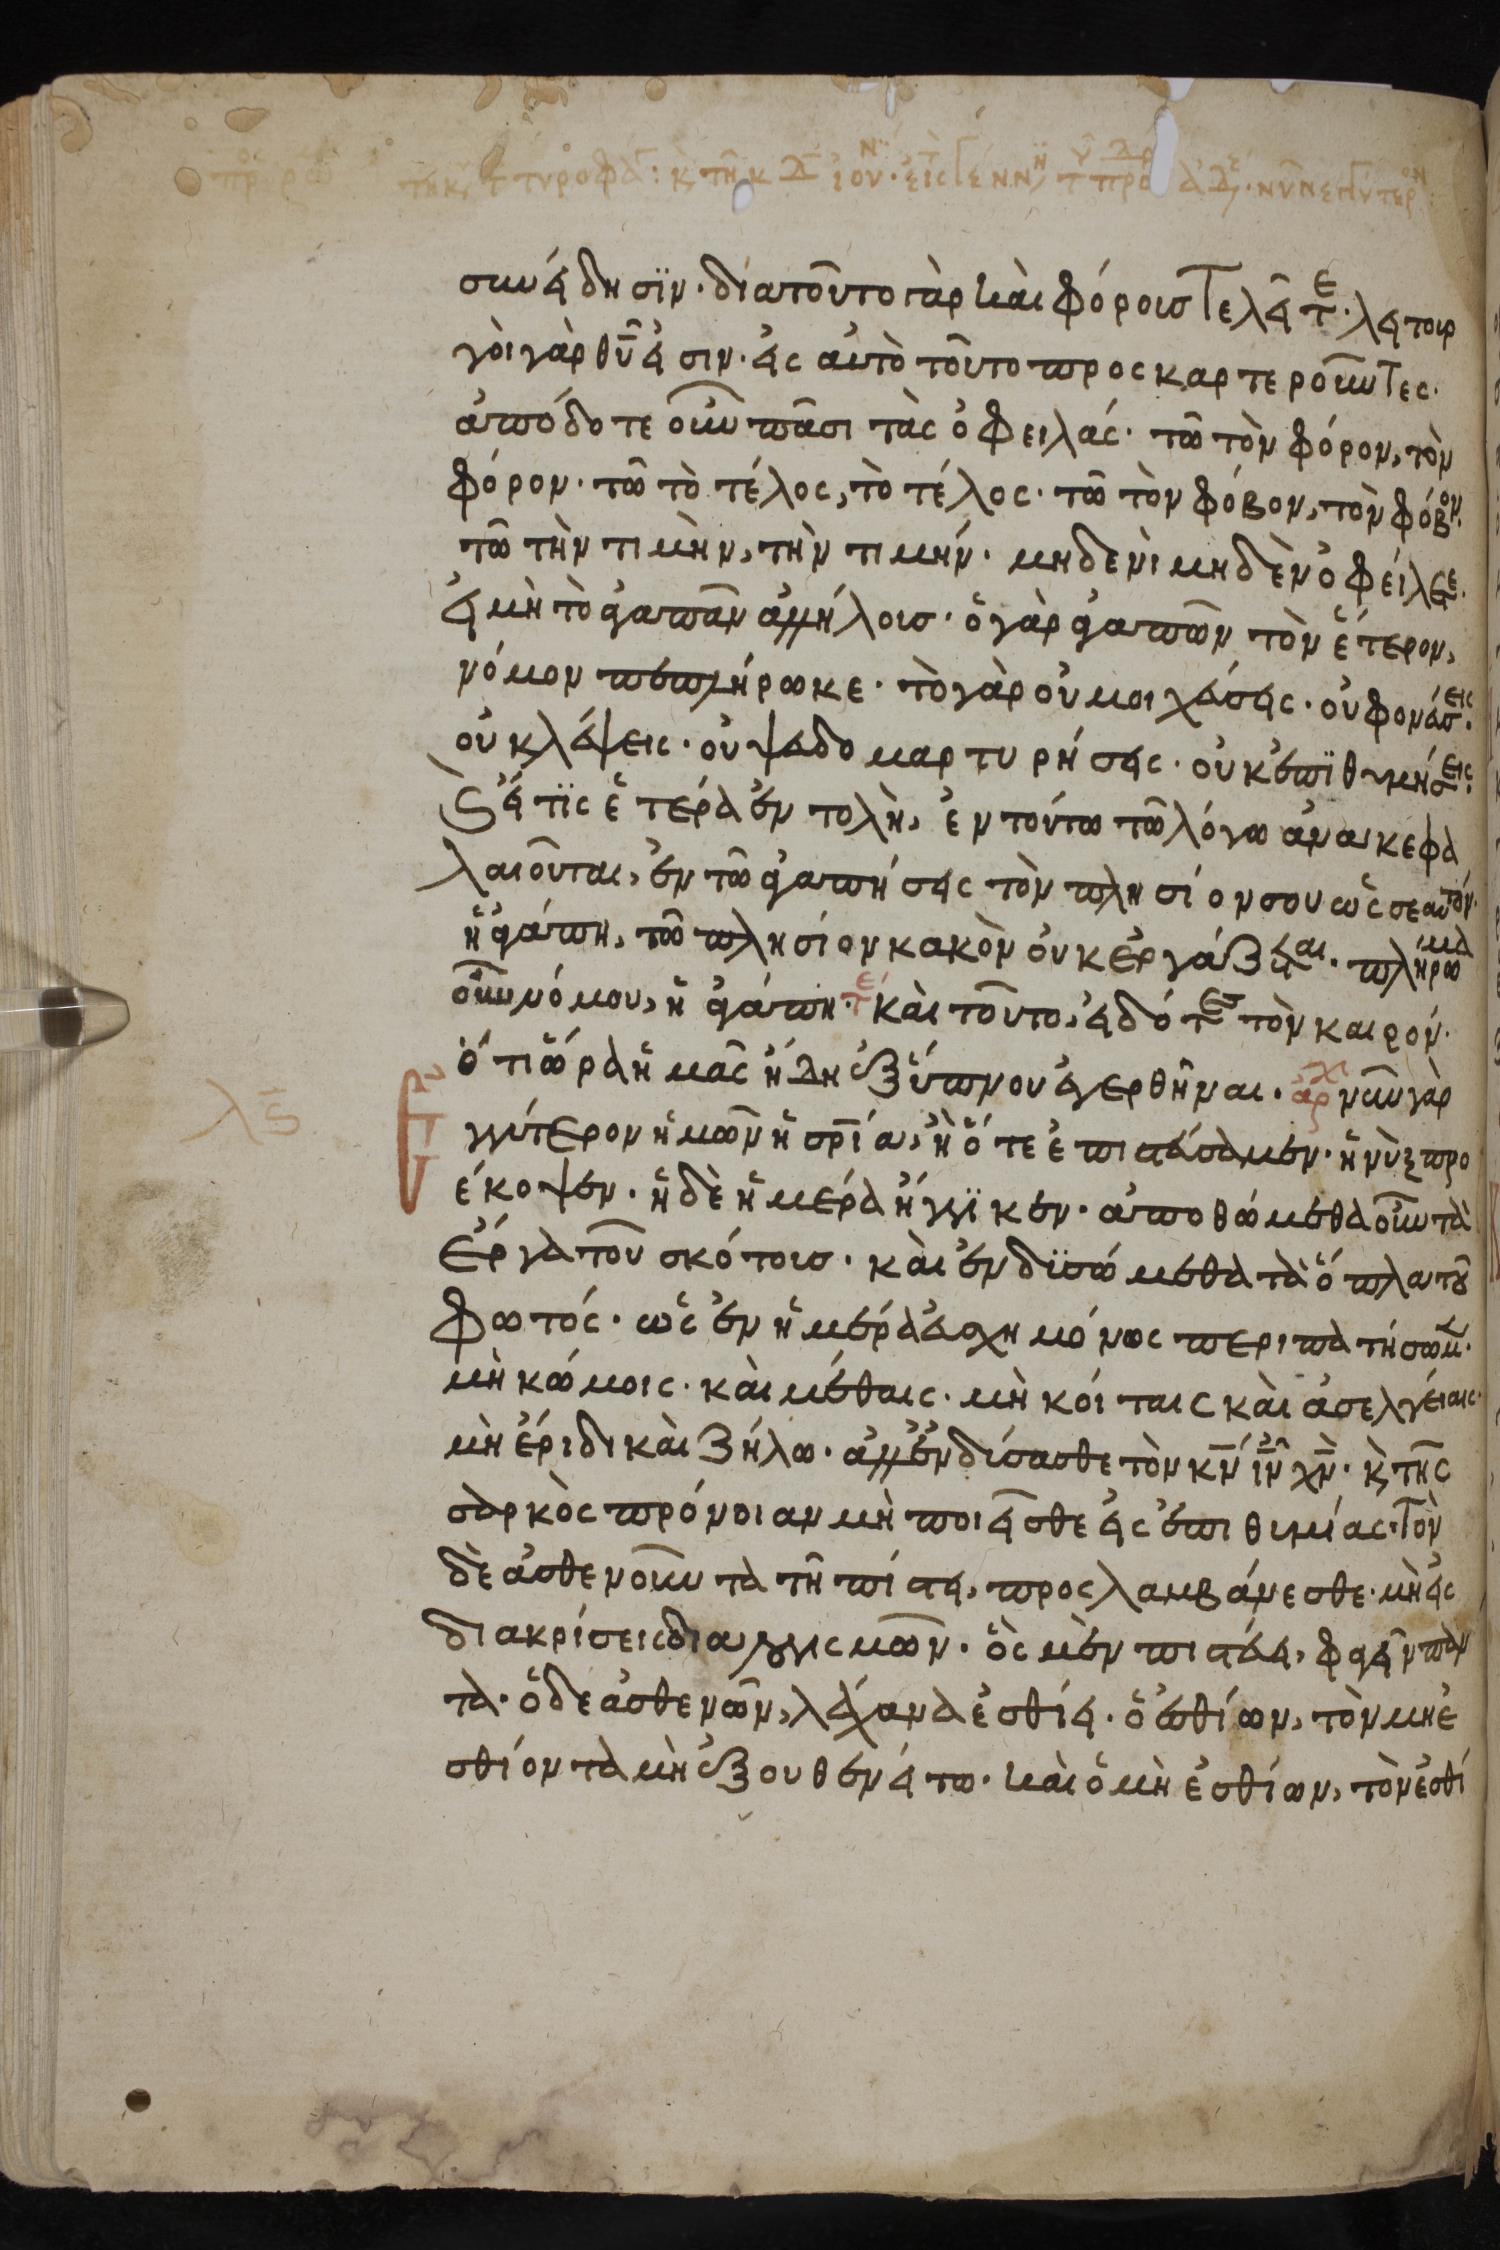 τῆ κυ τ τυροφα: κ τῆ κδ ἰουν· εἰς τ γενν τ προδρ ἀδε· νῦν ἐγγύτερον
συνείδησϊν· διατοῦτο γὰρ καὶ φόρους τελεῖτε· λειτουρ
γοὶ γὰρ θῦ εἰσιν· εἰς αὐτὸ τοῦτο προσκαρτεροῦντες·
ἀπόδοτε οὖν πᾶσι τὰς ὀφειλάς· τῶ τὸν φόρον, τὸν
φόρον· τῶ τὸ τέλος, τὸ τέλος· τῶ τὸν φόβον, τὸν φόβον·
τῶ τὴν τιμὴν, τὴν τιμήν· μηδενὶ μηδὲν ὀφείλετε·
εἰ μὴ τὸ ἀγαπᾶν ἀλλήλους· ὁ γὰρ ἀγαπῶν τὸν ἕτερον,
νόμον πεπλήρωκε· τὸ γὰρ οὐ μοιχεύσεις· οὐ φονεύσεις·
οὐ κλέψεις· οὐ ψευδομαρτυρήσεις· οὐκ ἐπϊθυμήσεις·
καὶ εἴ τϊς ἑτέρα ἐντολὴ, ἐν τούτω τῶ λόγω ἀνακεφα
λαιοῦται, ἐν τῶ ἀγαπήσεις τὸν πλησίον σου ὡς σεαυτόν·
ἡ ἀγάπη, τῶ πλησίον κακὸν οὐκ ἐργάζεται· πλήρωμα
οὖν νόμου, ἡ ἀγάπη· τε καὶ τοῦτο, εἰδότες τὸν καιρόν·
ὅτι ὥρα ἡμᾶς ἤδη ἐξ ὕπνου ἐγερθῆναι· ἀρχ νῦν γὰρ
λϛ
ἐγγύτερον ἡμῶν ἡ σρία, ἢ ὅτε ἐπιστεύσαμεν· ἡ νὺξ προ
έκοψεν· ἡ δὲ ἡμέρα ἤγγϊκεν· ἀποθώμεθα οὖν τὰ
ἔργα τοῦ σκότους· καὶ ἐνδϋσώμεθα τὰ ὅπλα τοῦ
φωτός· ὡς ἐν ἡμέρα εὐσχημόνως περιπατήσωμεν·
μὴ κώμοις· καὶ μέθαις· μὴ κοίταις καὶ ἀσελγείαις·
μὴ ἔριδι καὶ ζήλω· ἀλλ' ἐνδύσασθε τὸν κν ἰν χν· κ τῆς
σαρκὸς πρόνοιαν μὴ ποιεῖσθε εἰς ἐπιθυμίας· Τὸν
δὲ ἀσθενοῦντα τῆ πίστει, προσλαμβάνεσθε· μὴ εἰς
διακρίσεις διαλογισμῶν· ὃς μὲν πιστεύει, φαγεῖν πάν
τα· ὁ δὲ ἀσθενῶν, λάχανα ἐσθίει· ὁ ἐσθίων, τὸν μὴ ἐ
σθίοντα μὴ ἐξουθενείτω· καὶ ὁ μὴ ἐσθίων, τὸν ἐσθί